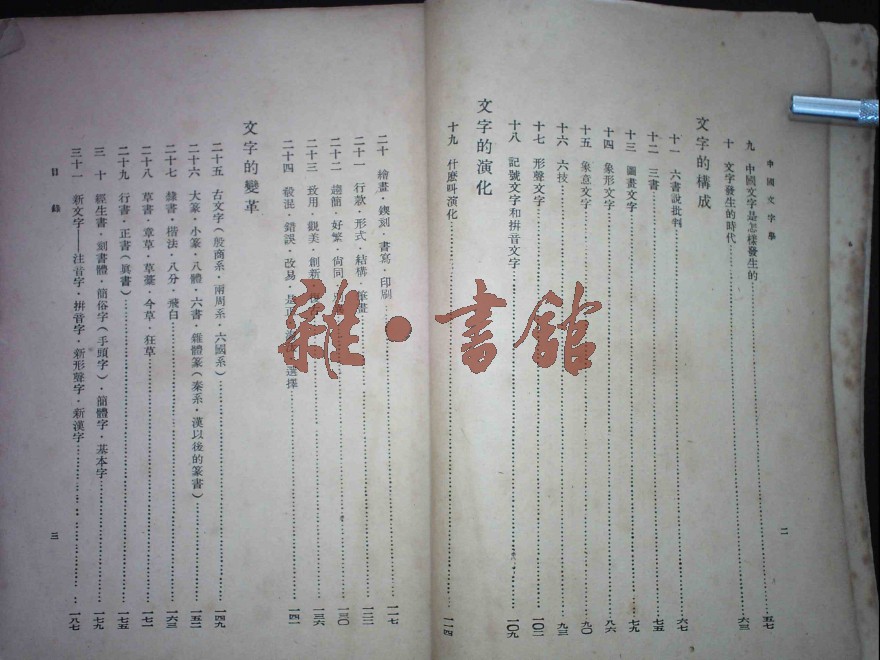 中國文字學
九 中國文字是怎樣發生的 五七
十 文字發生的時代 六三
文字的構成
十一 六書說批判 六七
十二 三書 七五
十三 圖畫文字 七九
十四 象形文字 八六
十五 象意文字 九〇
十六 六技 九三
十七 形聲文字 一〇二
十八 記號文字和拼音文字 一〇九
文字的演化
十九 什麼叫演化 一一四
二
二十 繪畫·鍥刻·書寫·印刷 一一七
二十一 行款·形式·結構·筆畫 一二二
二十二 趨簡·好繁·尙同 一三〇
二十三 致用·觀美·創新 一三六
二十四 殽混·錯誤·改易·是正 選擇 一四一
文字的變革
二十五 古文字(殷商系·兩周系·六國系) 一四九
二十六 大篆·小篆·八體·六書·雜體篆(秦系·漢以後的篆書) 一五二
二十七 隸書·楷法·八分·飛白 一六三
二十八 草書·章草·草藁·今草·狂草 一七一
二十九 行書·正書(眞書) 一七五
三十 經生書·刻書體·簡俗字(手頭字)·簡體字·基本字 一七九
三十一 新文字——注音字·拼音字·新形聲字·新漢字 一八七
目錄
三
雜·書館